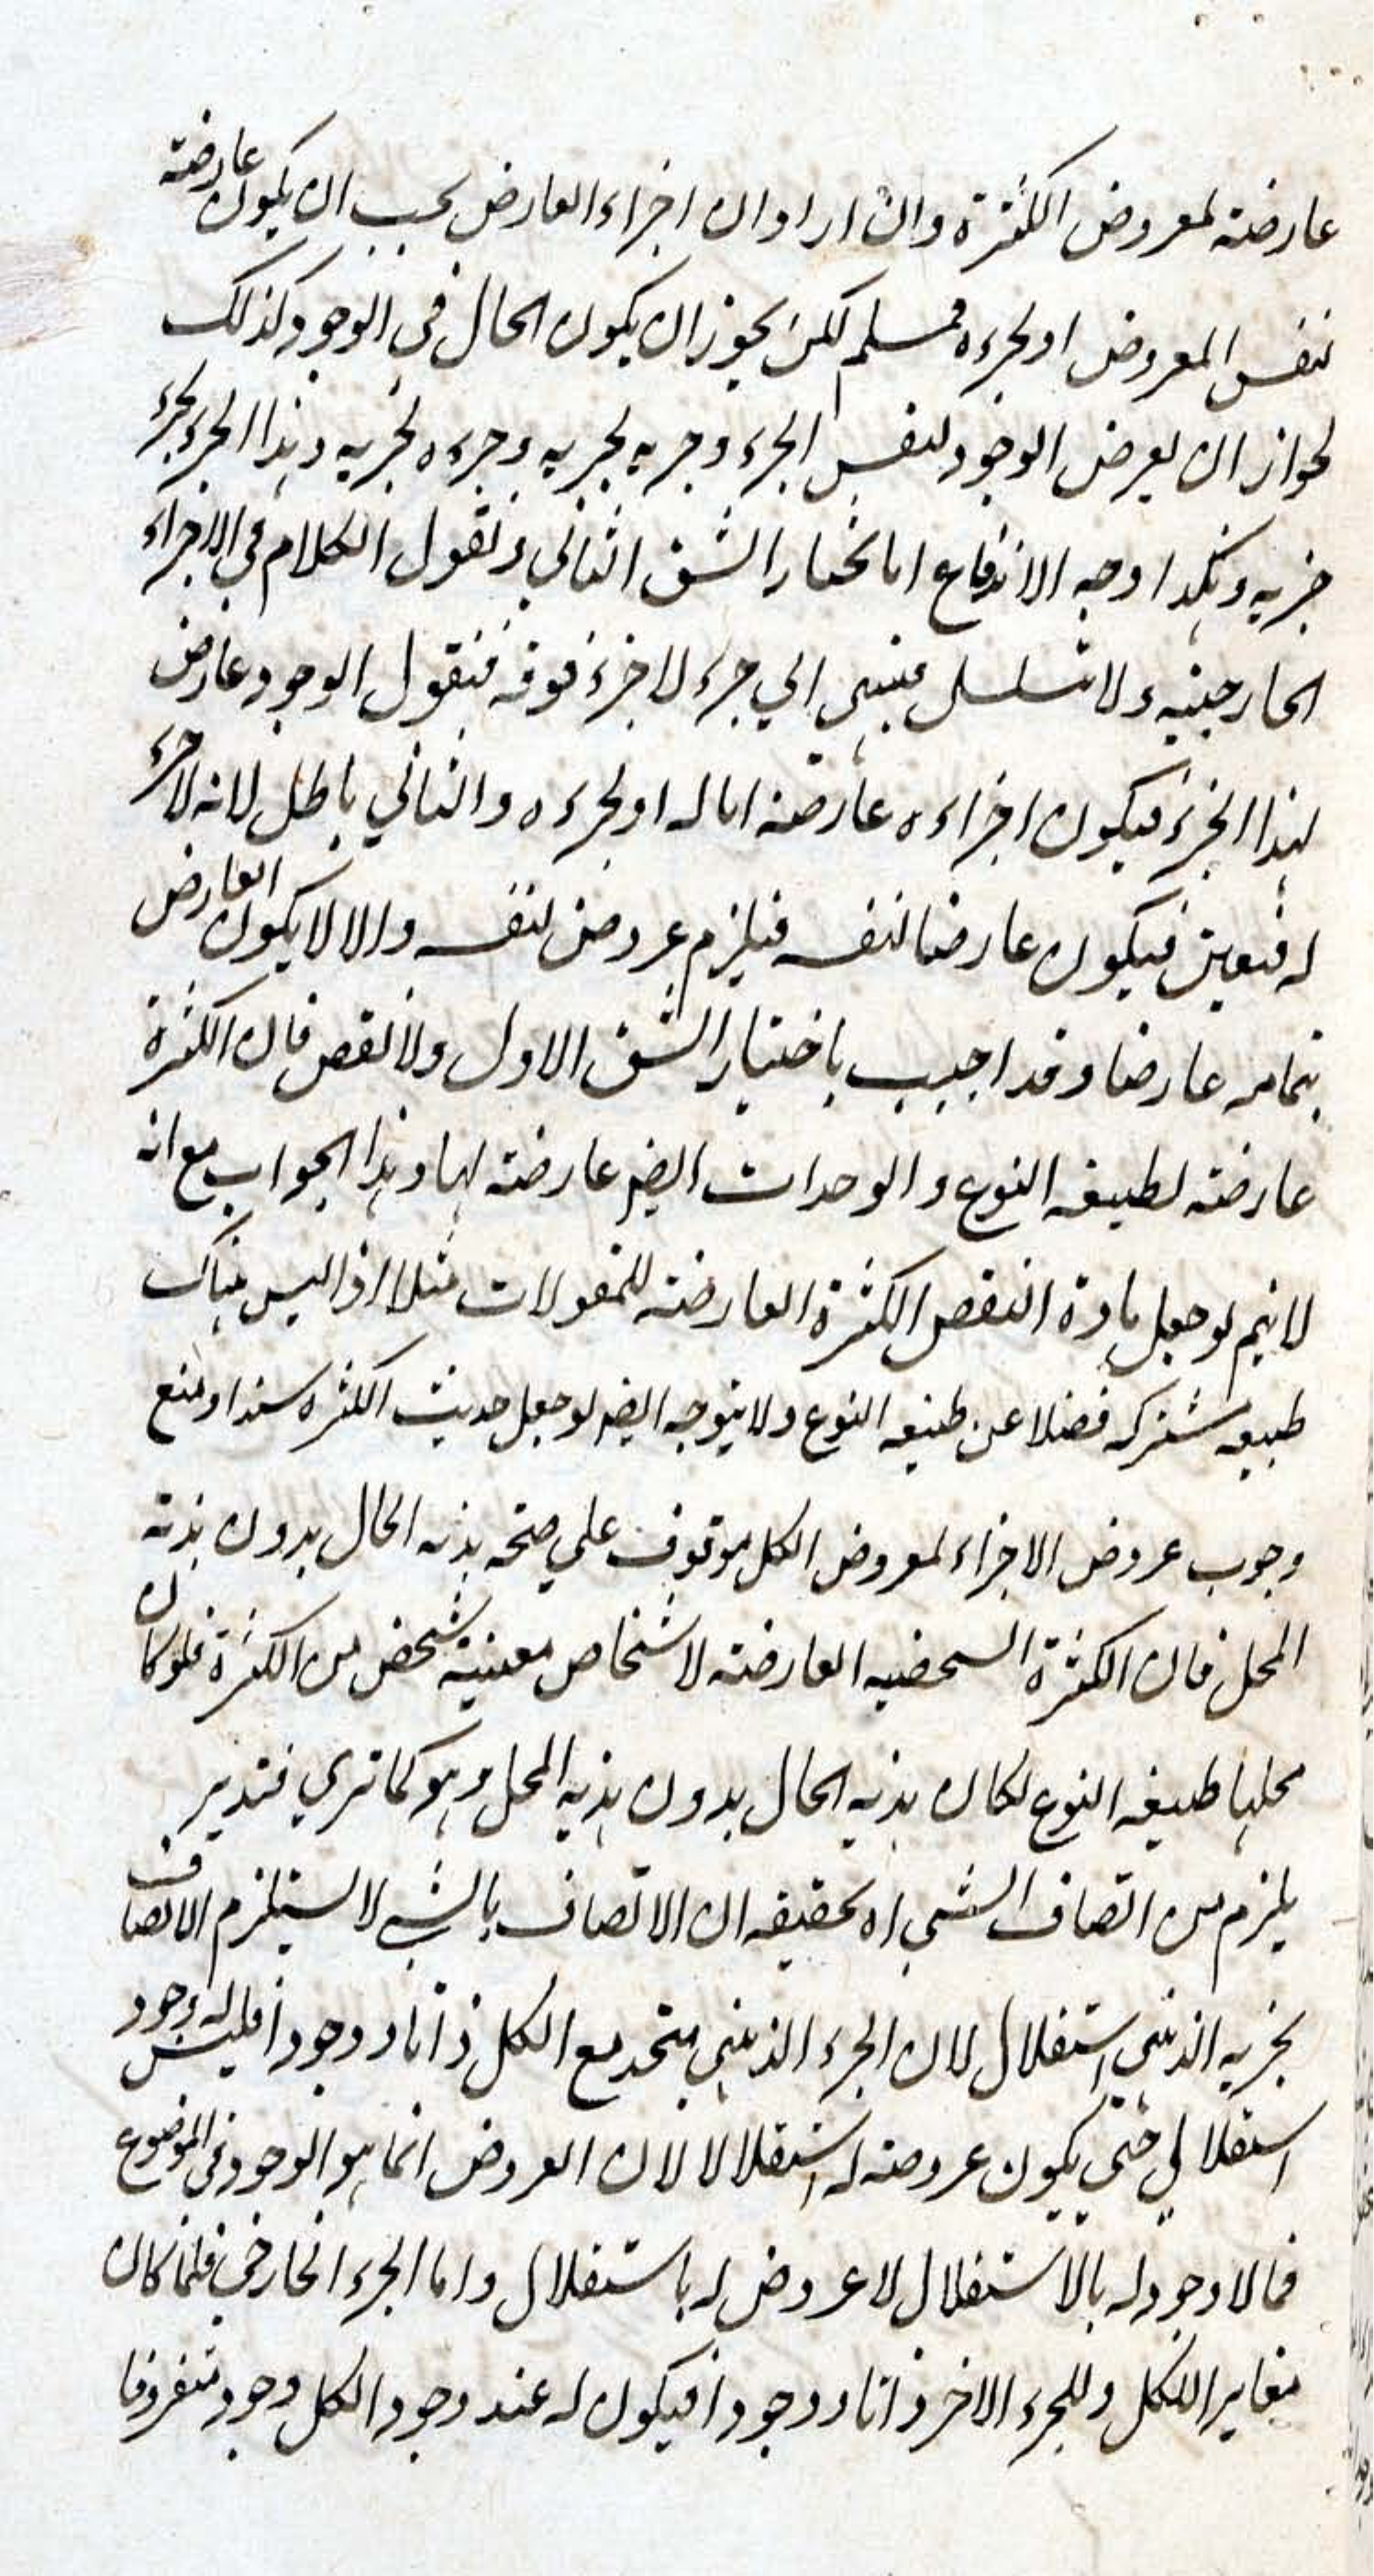 عارضة لمعروض الكثرة وان اراد ان اجزاء العارض يجب ان يكون عارضة
لنفس المعروض او لجزءه فمسلم لكن يجوز ان يكون الحال في الوجود كذلك
لجواز ان يعرض الوجود لنفس الجزء وجزيه لجزيه وجزءه لجزيه وهذا الجزء لجزء
جزيه وهكذا وجه الاندفاع انا نختار الشق الثاني ونقول الكلام في الاجزاء
الخارجية ولا تسلسل فينتهي الي جزء لا جزء فوقه فنقول الوجود عارض
لهذا الجزء فيكون اجزاءه عارضة اما له او لجزءه والثاني باطل لانه لا جزء
له فتعين فيكون عارضا لنفسه فيلزم عروض لنفسه والا لا يكون العارض
بتمامه عارضا وقد اجيب باختيار الشق الاول ولا نقض فان الكثرة
عارضة لطبيعة النوع والوحدات ايضا عارضة لها وهذا الجواب مع انه
لا يتم لو جعل مادة النقض الكثرة العارضة للمقولات مثلا اذ ليس هناك
طبيعة مشتركة فضلا عن طبيعة النوع ولا يتوجه ايضا لو جعل حديث الكثرة سندا ومنع
وجوب عروض الاجزاء لمعروض الكل موقوف علي صحة هذيه الحال بدون هذية
المحل فان الكثرة الشخصية العارضة لاشخاص معينة شخص من الكثرة فلو كان
محلها طبيعة النوع لكان هذيه الحال بدون هذيه المحل وهو كما تري فتدبر
يلزم من اتصاف الشي اه تحقيقه ان الاتصاف بالشي لا يستلزم الاتصاف
بجزيه الذهني استقلالا لان الجزء الذهني متحد مع الكل ذاتا ووجودا فليس له وجود
استقلالي حتي يكون عروضه له استقلالا لان العروض انما هو الوجود في الموضوع
فما لا وجود له بالاستقلال لا عروض له باستقلال واما الجزء الخارجي فلما كان
مغايرا للكل وللجزء الاخر ذاتا ووجودا فيكون له عند وجود الكل وجود متفرقا